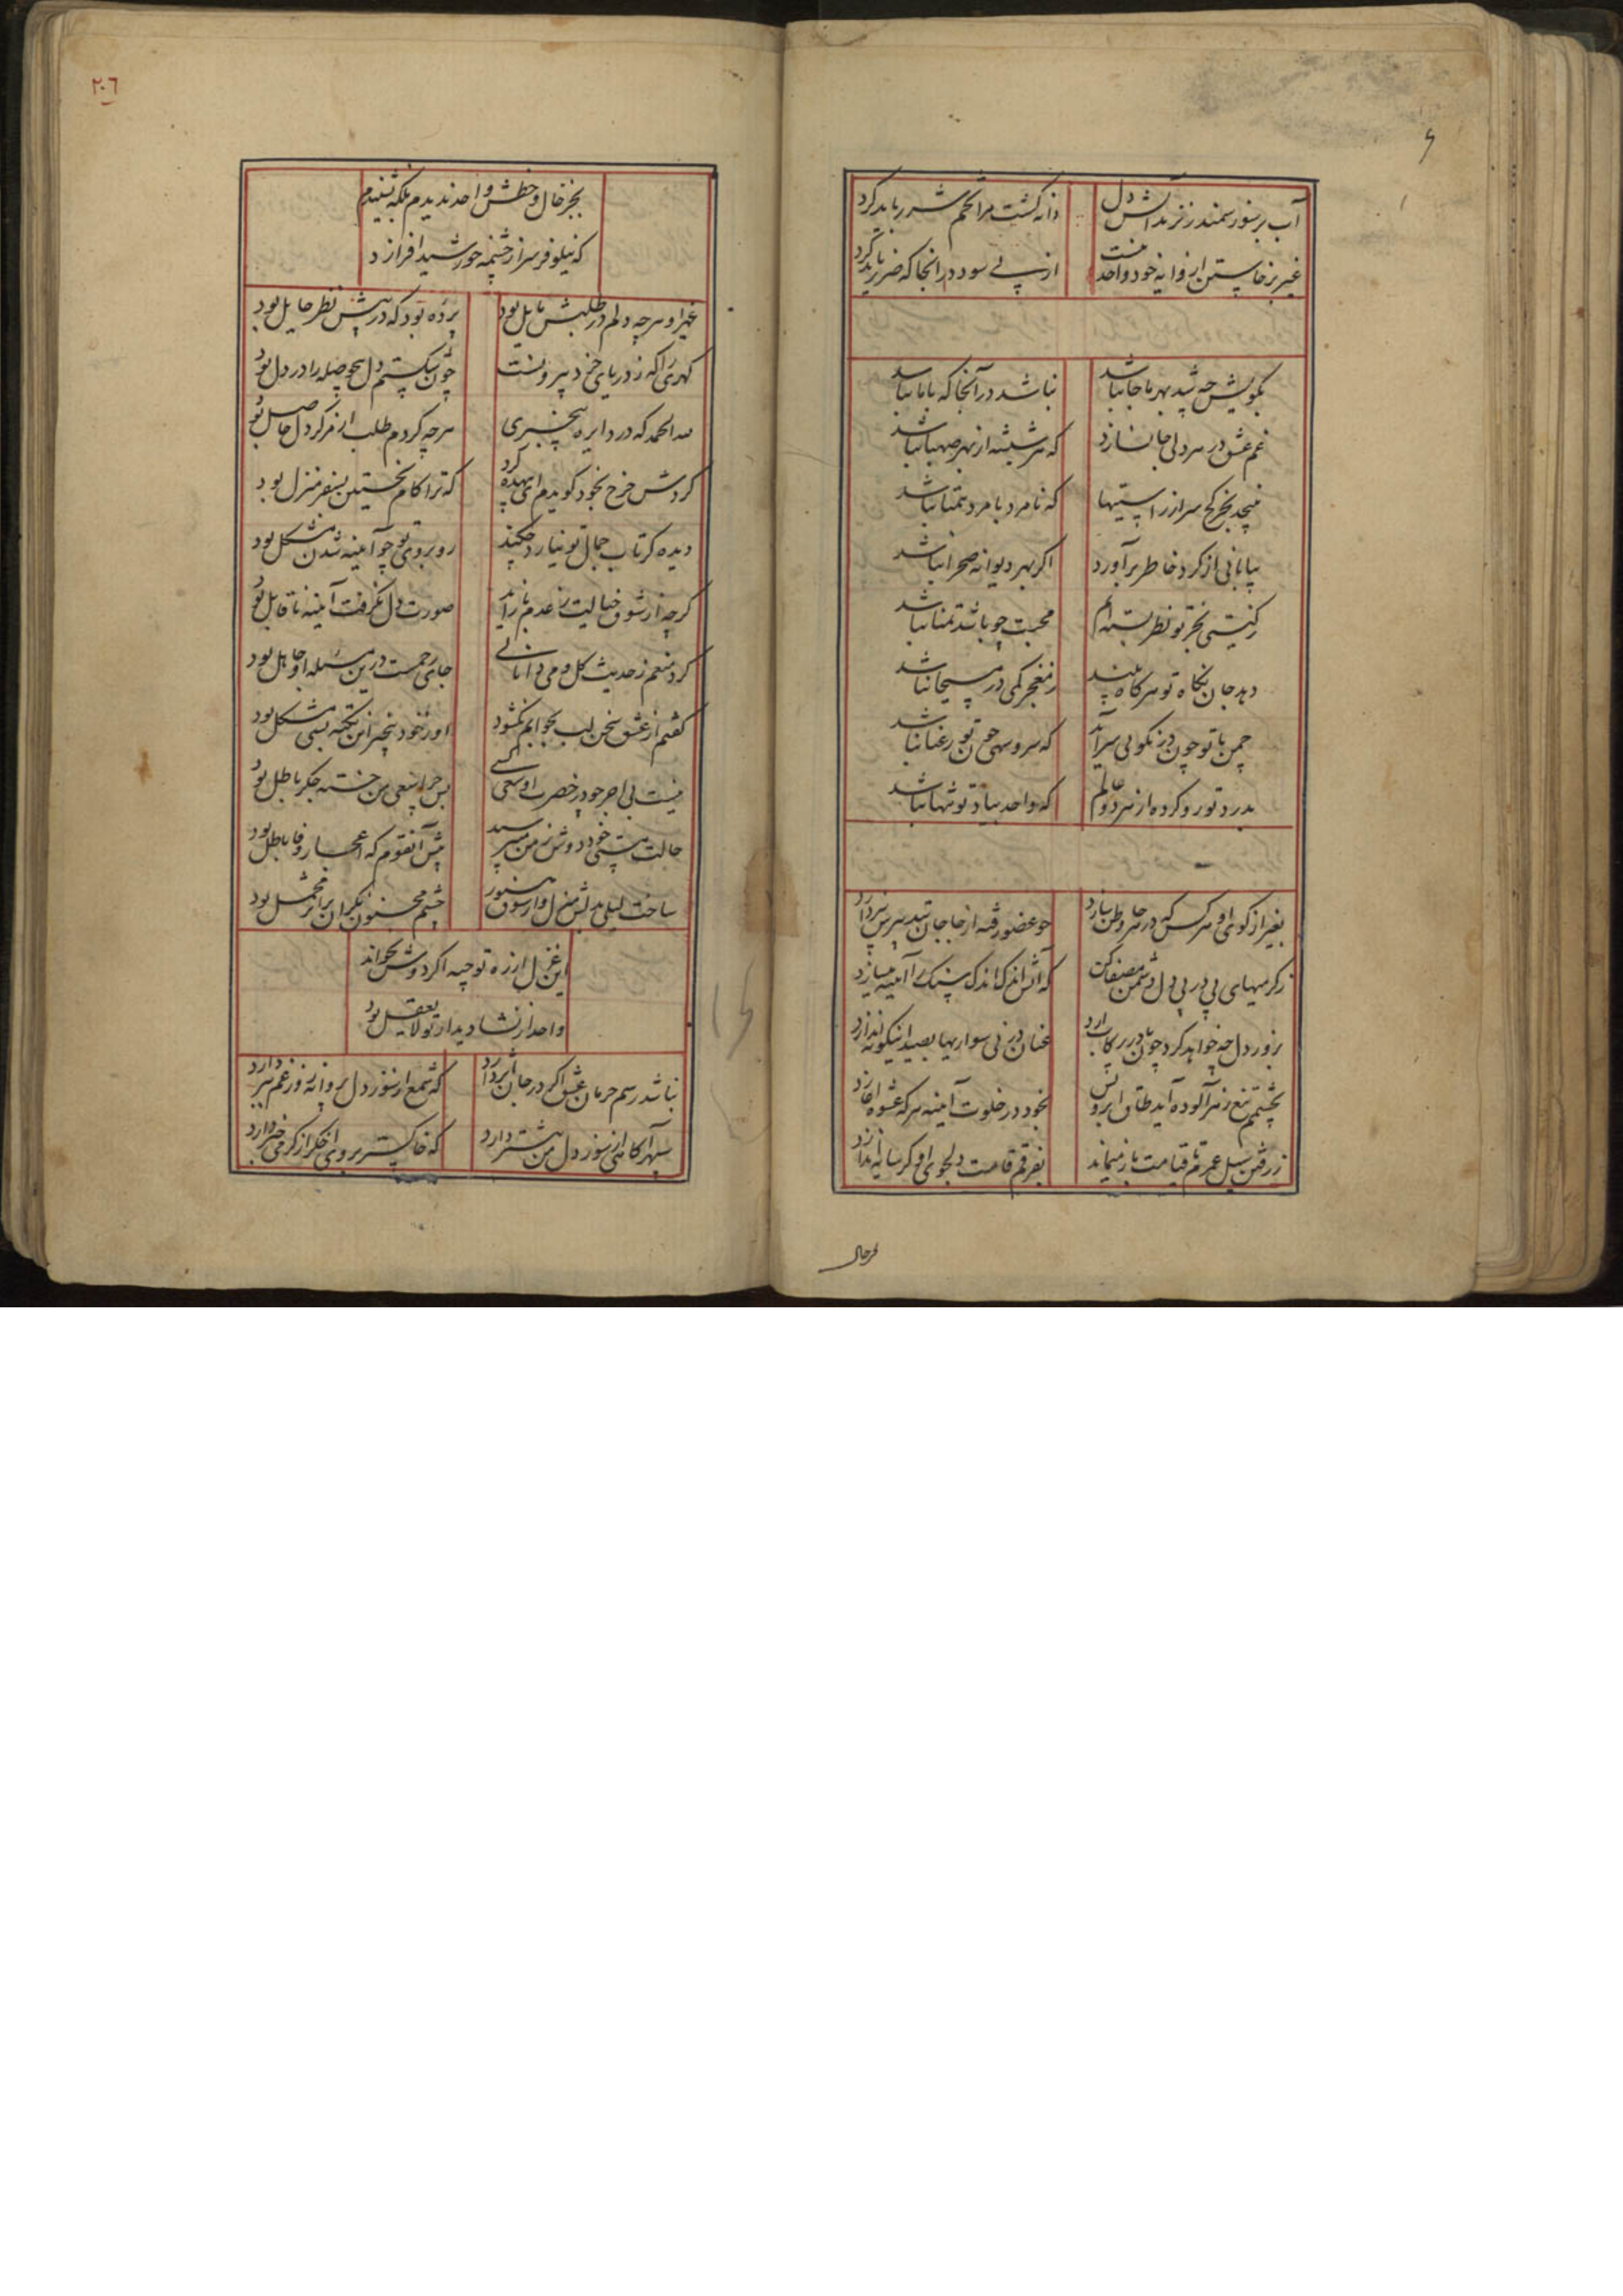 آب بر سوز سمندر نزند آتش دل
دانه کشت مرا تخم شرر باید کرد
غیر برخاستن از وایه خود واحد نیست
از پی سود در آنجا که ضرر باید کرد
بکویش چه شد بهر ما جا نباشد
نباشد در آنجا که با ما نباشد
غم عشق در هر دلی جا نسازد
که هر شیشه از بهر صهبا نباشد
نپیچد بجز کج سر از راستیها
که نامرد با مرد همتا نباشد
بیابانی از کرد خاطر برآورد
اکر بهر دیوانه صحرا نباشد
بجز تو نظر بسته‌ام
محبت چو باشد تمنا نباشد
دهد جان نکاه تو هر کاه بیند
ز معجز کمی در مسیحا نباشد
چمن با تو چون در نکویی سرآید
که سرو سهی چون تو رعنا نباشد
بدرد تو رو کرده از هر دو عالم
که واحد بیاد تو تنها نباشد
بغیر از کوی او هر کس که در هر جا وطن سازد
چو عضو رفته از جا جان
ز کرمیهای پی در پی دل دشمن مصفا کن
که آتش اندک اندک سنک را آیینه میسازد
بزور دل چه خواهد کرد چون پا در رکاب آرد
عنان در نی سواریها بصید اینکونه اندازد
بچشمم تیغ زهرآلوده آید طاق ابرویش
بخود در خلوت آیینه هر که عشوه آغازد
ز رفتن سیل عمرم تا قیامت باز میماند
بفرقم قامت دلجوی او کر سایه اندازد
۲۰۶
بجز خال و خطش واحد ندیدم بلکه نشنیدم
که نیلوفر سر از چشمه خورشید افرازد
غیر او هر چه دلم در طلبش مایل بود
پرده بود که در پیش نظر حایل بود
کهری را که ز دریای خرد بیرونست
چون شکستم دل بیحوصله را در دل بود
لله الحمد که در دایره بیخبری
هر چه کردم طلب از مرکز دل حاصل بود
کردش چرخ بخود کویدم ای بیهده کرد
که ترا کام نخستین سفر منزل بود
دیده کر تاب جمال تو نیارد چکند
روبروی تو چو آیینه شدن مشکل بود
کرچه از شوق خیالت ز عدم باز آید
صورت دل نکرفت آینه ناقابل بود
کرد منعم ز حدیث کل و می نادانی
جای رحمست درین مسئله او جاهل بود
کفتم از عشق سخن لب بجوابم نکشود
او ز خود بیخبر این نکته بسی مشکل بود
نیست بی اجر چو در حضرت او سعی کسی
پس چرا سعی من خسته جکر باطل بود
حالت مستی خود دوش ز من میپرسید
پیش آنقوم که اعجاز وفا باطل بود
ساخت لیلی
چشم مجنون نکران بر اثر محمل بود
این غزل از ره توجیه اکر دوش بخواند
واحد از نشاء دیدار تو لا یعقل بود
نباشد رسم حرمان عشق اکر در جان اثر دارد
که شمع از سوز دل پروانه روز غم بسر دارد
سپهر آکاهی از سوز دل من بیشتر دارد
که خاکستر بروی اخکر از کرمی خبر دارد